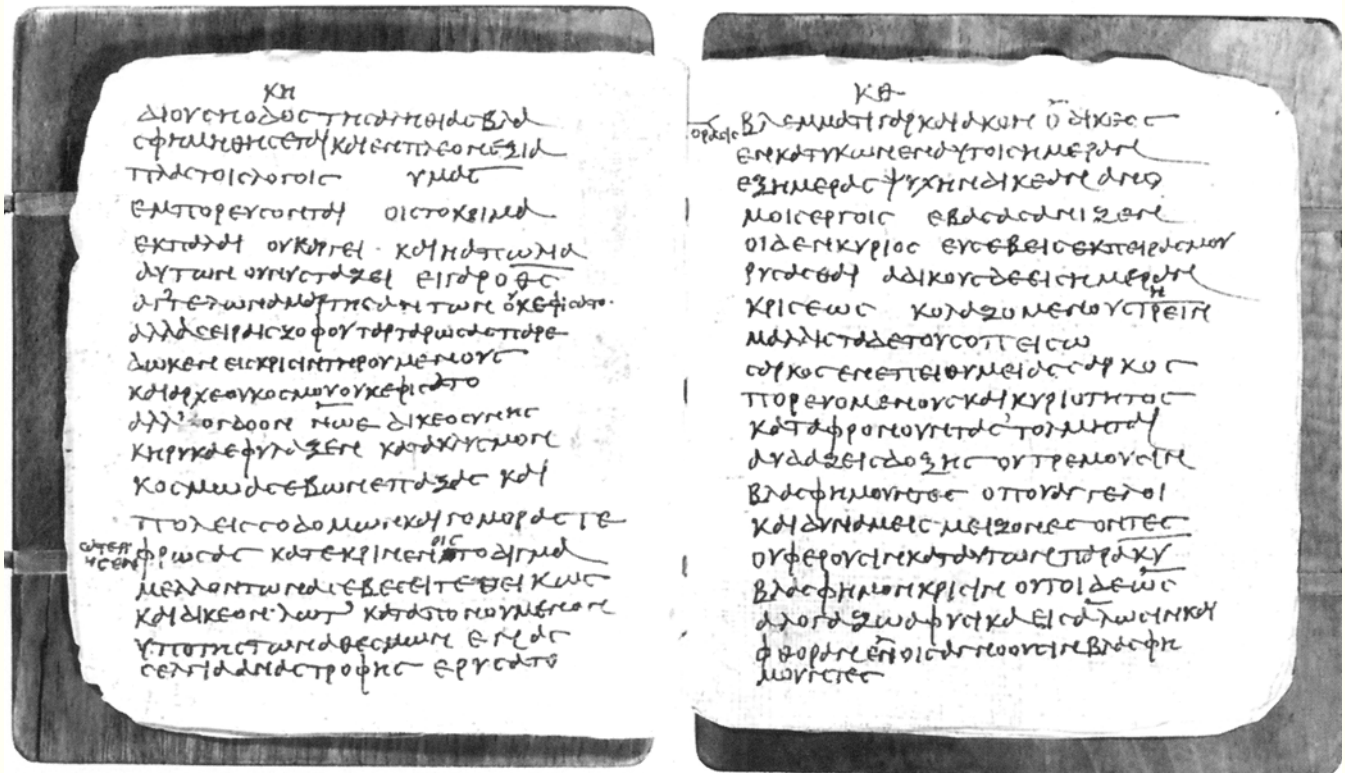 ΚΗ
ΔΙΟΥΣΗΟΔΟΣΤΗΣΑΛΗΘΙΑΣΒΛΑ
ΣΦΗΜΗΘΗΣΕΤΑΙΚΑΙΕΝΠΛΕΟΝΕΞΙΑ
ΠΛΑΣΤΟΙΣΛΟΓΟΙΣ ΥΜΑΣ
ΕΜΠΟΡΕΥΣΟΝΤΑΙ ΟΙΣΤΟΚΡΙΜΑ
ΕΚΠΑΛΑΙ ΟΥΚΑΡΓΕΙ · ΚΑΙΗΑΠΩΛΙΑ
ΑΥΤΩΝ ΟΥΝΥΣΤΑΞΕΙ ΕΙΓΑΡΟΘΣ
ΑΓΓΕΛΩΝΑΜΑΡΤΗΣΑΝΤΩΝ ΟΥΚΕΦΙΣΑΤΟ·
ΑΛΛΑΣΕΙΡΑΙΣΖΟΦΟΥΤΑΡΤΑΡΩΣΑΣΠΑΡΕ
ΔΩΚΕΝΕΙΣΚΡΙΣΙΝΤΗΡΟΥΜΕΝΟΥΣ
ΚΑΙΑΡΧΕΟΥΚΟΣΜΟΥΟΥΚΕΦΙΣΑΤΟ
ΑΛΛ᾿ ΟΓΔΟΟΝ ΝΩΕ ΔΙΚΕΟΣΥΝΗΣ
ΚΗΡΥΚΑΕΦΥΛΑΞΕΝ ΚΑΤΑΚΛΥΣΜΟΝ
ΚΟΣΜΩΑΣΕΒΩΝΕΠΑΞΑΣ ΚΑΙ
ΠΟΛΕΙΣΣΟΔΟΜΩΝΚΑΙΓΟΜΟΡΑΣΤΕ
ΦΡΩΣΑΣ ΚΑΤΕΚΡΙΝΕΝ ΥΠΟΔΙΓΜΑ
ΜΕΛΛΟΝΤΩΝΑΣΕΒΕΣΕΙΤΕΘΕΙΚΩΣ
ΚΑΙΔΙΚΕΟΝ·ΛΩΤ᾿ ΚΑΤΑΠΟΝΟΥΜΕΝΟΝ
ΥΠΟΤΗΣΤΩΝΑΘΕΣΜΩΝ ΕΝΑΣ
ΣΕΛΓΙΑΑΝΑΣΤΡΟΦΗΣ ΕΡΥΣΑΤΟ
ΚΘ
ΟΡΑΣΙΣ
ΒΛΕΜΜΑΤΙΓΑΡΚΑΙΑΚΟΗ Ο ΔΙΚΕΟΣ
ΕΝΚΑΤΥΚΩΝΕΝΑΥΤΟΙΣΗΜΕΡΑΝ
ΕΞΗΜΕΡΑΣ ΨΥΧΗΝΔΙΚΕΑΝ ΑΝΟ
ΜΟΙΣΕΡΓΟΙΣ ΕΒΑΣΑΣΑΝΙΖΕΝ
ΟΙΔΕΝΚΥΡΙΟΣ ΕΥΣΕΒΕΙΣΕΚΠΕΙΡΑΣΜΟΥ
ΡΥΣΑΣΘΑΙ ΑΔΙΚΟΥΣΔΕΕΙΣΗΜΕΡΑΝ
ΚΡΙΣΕΩΣ ΚΟΛΑΖΟΜΕΝΟΥΣΤΗΡΕΙΝ
ΜΑΛΛΙΣΤΑΔΕΤΟΥΣΟΠΕΙΣΩ
ΣΑΡΚΟΣΕΝΕΠΕΙΘΥΜΕΙΑΣΣΑΡΚΟΣ
ΠΟΡΕΥΟΜΕΝΟΥΣΚΑΙΚΥΡΙΟΤΗΤΟΣ
ΚΑΤΑΦΡΟΝΟΥΝΤΑΣ᾿ΤΟΛΜΗΤΑΙ
ΑΥΔΑΔΕΙΣΔΟΞΗΣ ΟΥΤΡΕΜΟΥΣΙΝ
ΒΛΑΣΦΗΜΟΥΝΤΕΣ ΟΠΟΥΑΓΓΕΛΟΙ
ΚΑΙΔΥΝΑΜΕΙΣ ΜΕΙΖΟΝΕΣ ΟΝΤΕΣ
ΟΥΦΕΡΟΥΣΙΝΚΑΤΑΥΤΩΝΠΑΡΑΚΥ
ΒΛΑΣΦΗΜΟΝΚΡΙΣΙΝ ΟΥΤΟΙΔΕΩΣ
ΑΛΟΓΑΖΩΑΦΥΣΙΚΑΕΙΣΑΛΩΣΙΝΚΑΙ
ΦΘΟΡΑΝΕΝΟΙΣΑΓΝΟΟΥΣΙΝΒΛΑΣΦΗ
ΜΟΥΝΤΕΣ